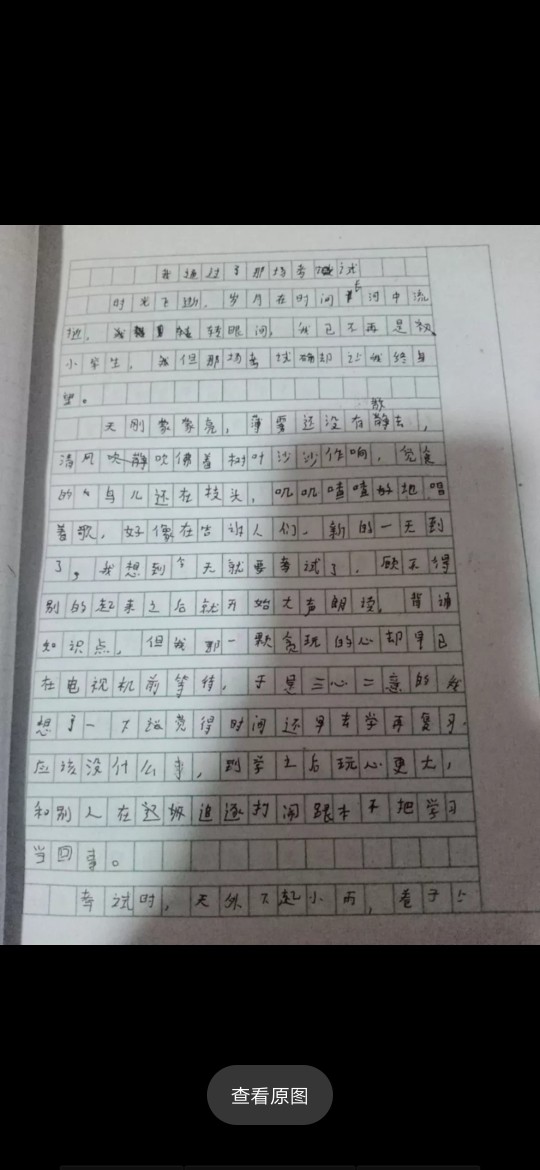 我通过了那场考试
时光飞逝，岁月在时间长河中流
逝，转眼间，我已不再是
小学生，但那场考试却让我终身
天刚蒙蒙亮，薄雾还没有散去，
清风吹拂着树叶沙沙作响，觅食
的鸟儿还在枝头，叽叽喳喳好地唱
着歌，好像在告诉人们，新的一天到
了，我想到今天就要考试了，顾不得
别的起来之后就开始大声朗读，背诵
知识点，但我那一颗贪玩的心却早已
在电视机前等待，于是三心二意的我
想了一下设觉得时间还早去学再复习．
应该没什么事，到学之后玩心更大，
和别人在班级追逐打闹跟本不把学习
当回事。
考试时，天外下起小雨，看了
查看原图